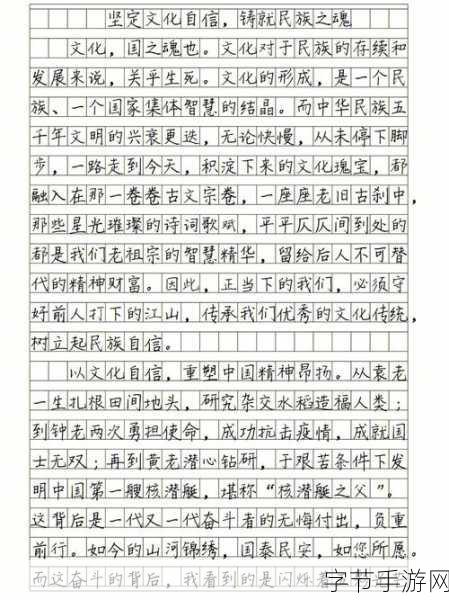 坚定文化自信，铸就民族之魂
文化，国之魂也。文化对于民族的存续和
发展来说，关乎生死。文化的形成，是一个民
族、一个国家集体智慧的结晶。而中华民族五
千年文明的兴衰更迭，无论快慢，从未停下脚
步，一路走到今天，积淀下来的文化瑰宝，都
融入在那一卷卷古文宗卷，一座座老旧古刹中，
那些星光璀璨的诗词歌赋，平平仄仄间到处的
都是我们老祖宗的智慧精华，留给后人不可替
代的精神财富。因此，正当下的我们，必须守
好前人打下的江山，传承我们优秀的文化传统，
树立起民族自信。
以文化自信，重塑中国精神昂扬。从袁老
一生扎根田间地头，研究杂交水稻造福人类；
到钟老两次勇担使命，成功抗击疫情，成就国
士无双；再到黄老潜心钻研，于艰苦条件下发
明中国第一艘核潜艇，堪称“核潜艇之父”。
这背后是一代又一代奋斗者的无悔付出，负重
前行。如今的山河锦绣，国泰民安，如您所愿。
而这奋斗的背后，我看到的是闪烁着
字节手游网